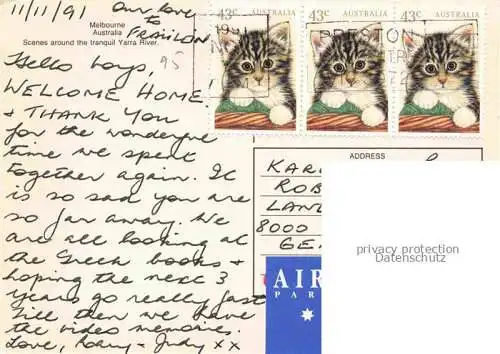 11/11/91
Our love
to
FRAULON
Melbourne
Australia
Scenes around the tranquil Yarra River.
95
Hello boys,
WELCOME HOME!
& THANK YOU
for the wonderful
time we spent
together again. It
is so sad you are
so far away. We
are all looking at
the Greek books &
hoping the next 3
years go really fast
Till then we have
the video memories.
Love, Roary + Judy xx
43c AUSTRALIA
43c AUSTRALIA
43c AUSTRALIA
PRESTON
ADDRESS
KAR
ROB
LAN
8000
GE
privacy protection
Datenschutz
AIR
PAR